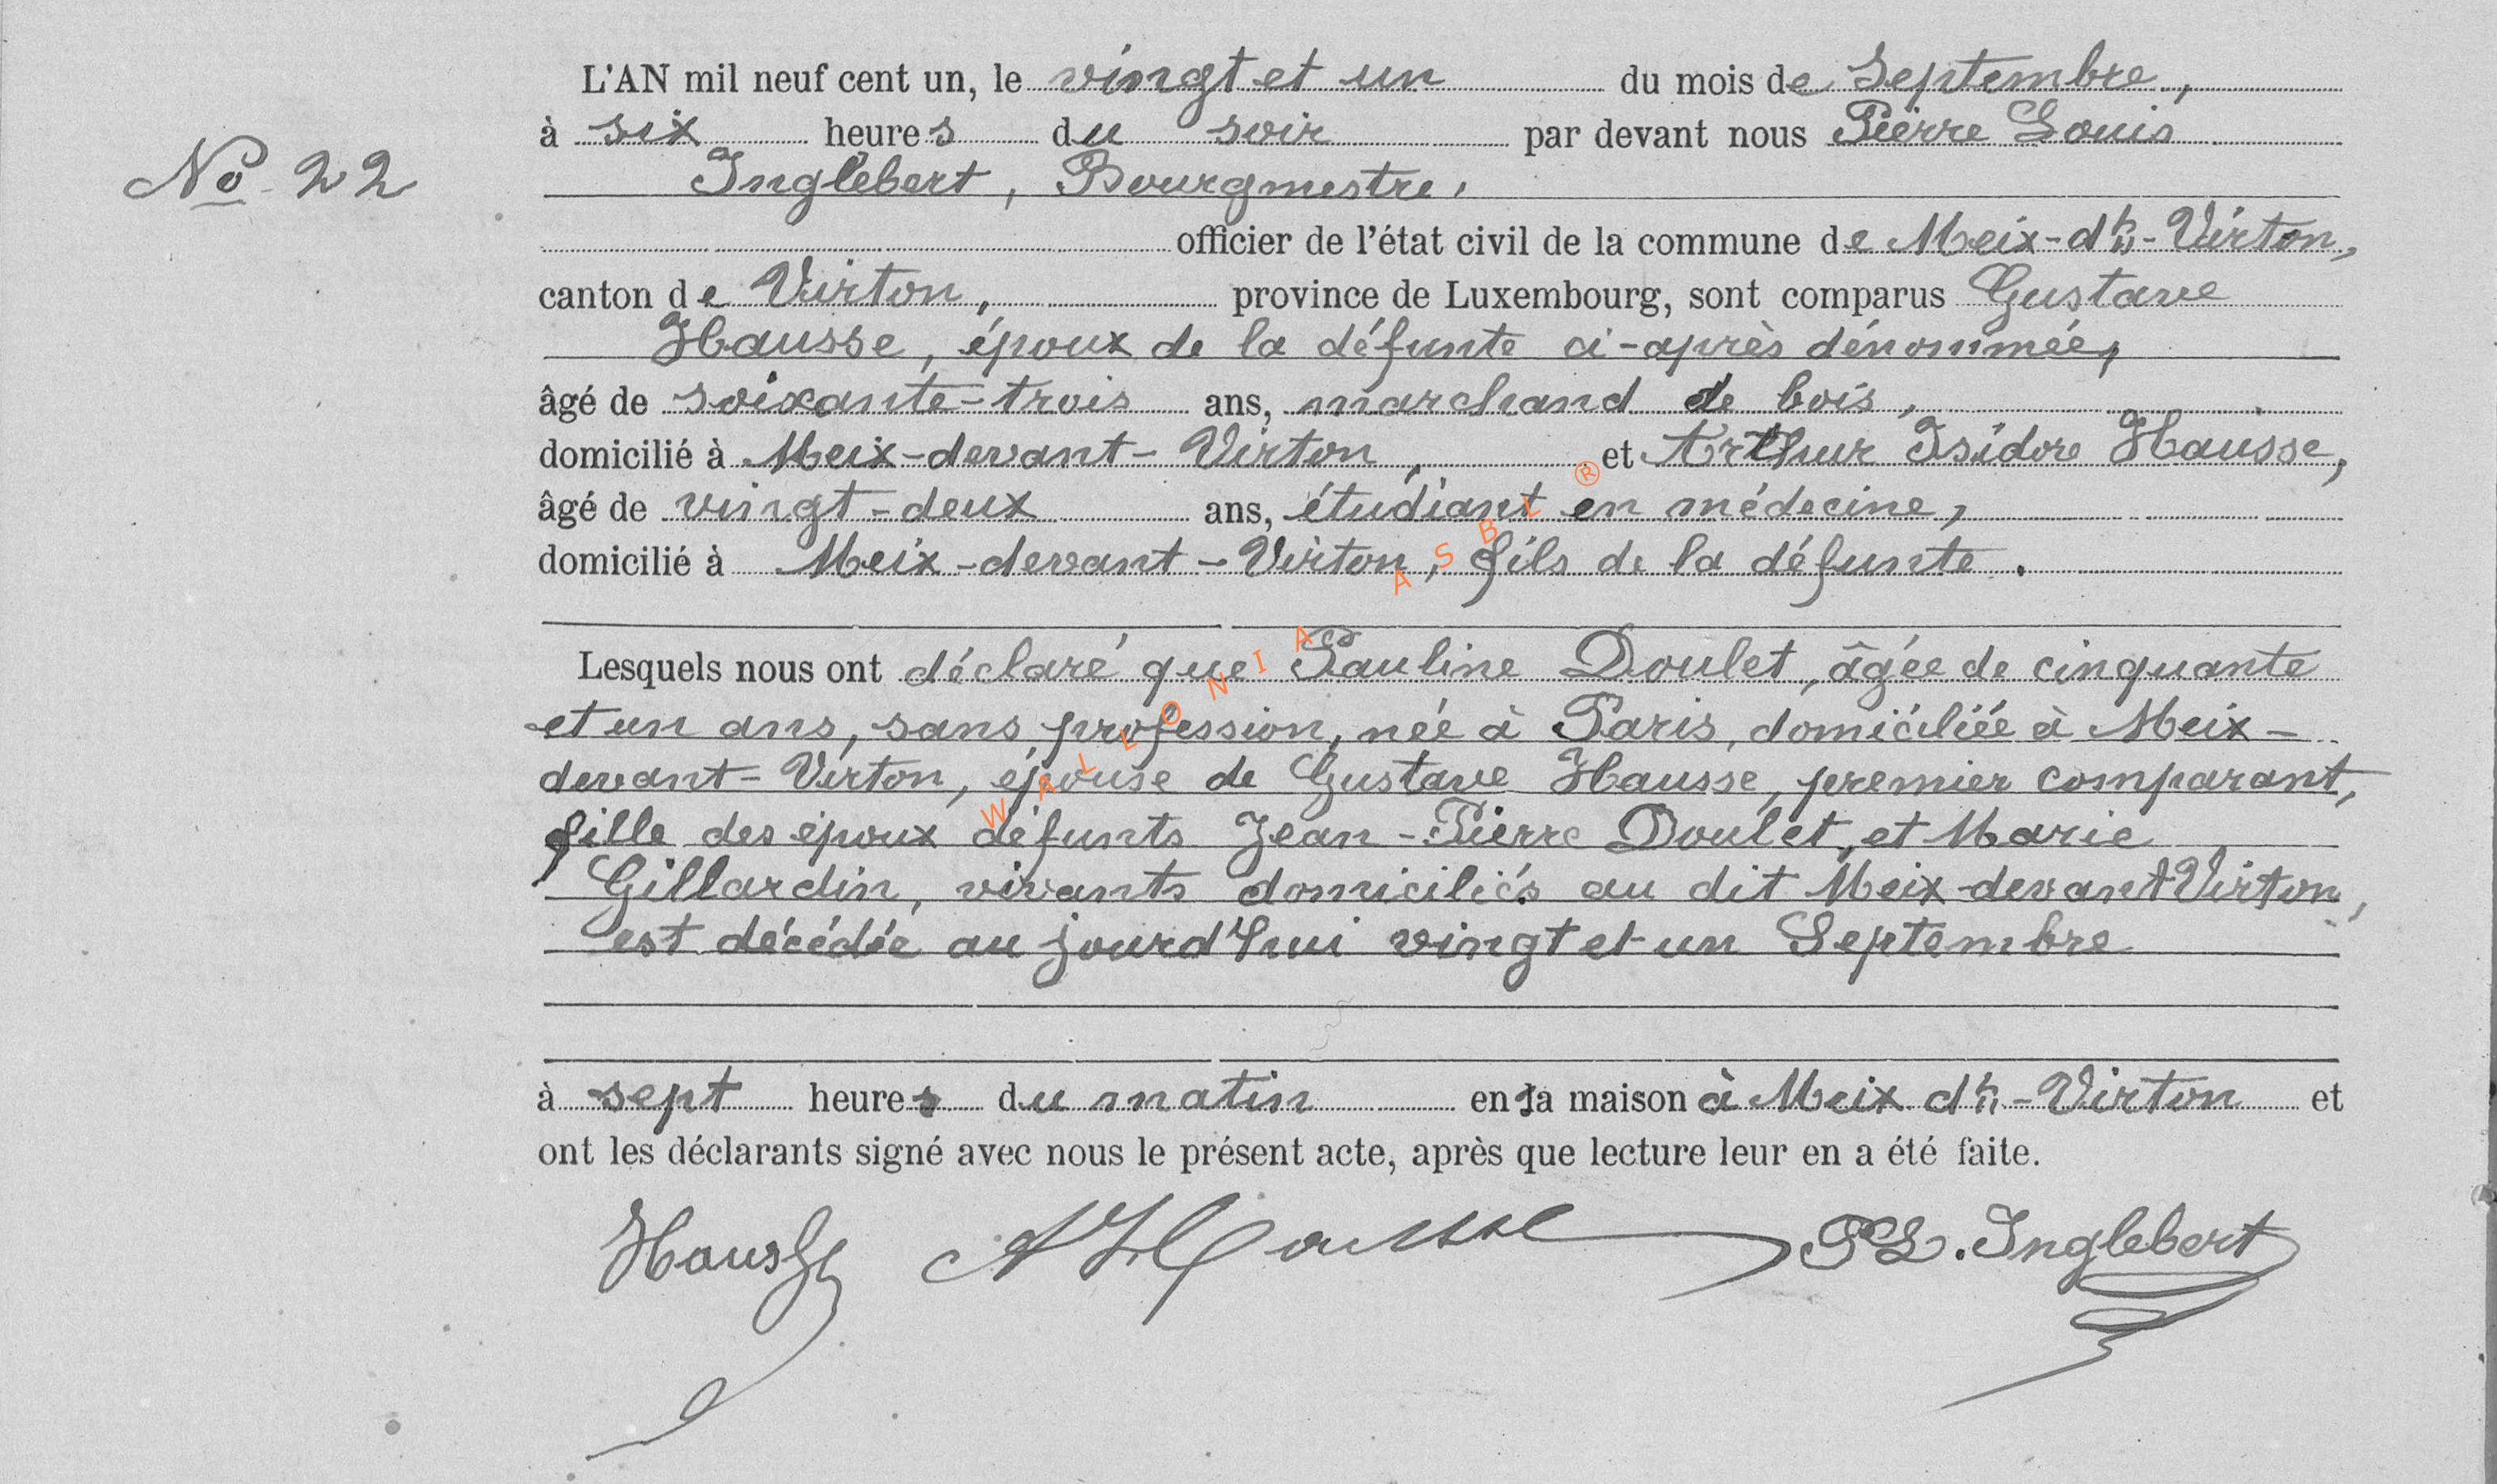 L'AN mil neuf cent un, le vingt et un du mois de Septembre,
à six heures du soir par devant nous Pierre Louis
No 22
Inglebert, Bourgmestre,
officier de l'état civil de la commune de Meix-dt-Virton,
canton de Virton, province de Luxembourg, sont comparus Gustave
Hausse, époux de la défunte ci-après dénommée,
âgé de soixante-trois ans, marchand de bois,
domicilié à Meix-devant-Virton, et Arthur Isidore Hausse,
âgé de vingt-deux ans, étudiant en médecine,
domicilié à Meix-devant-Virton, fils de la défunte.
Lesquels nous ont déclaré que Pauline Doulet, âgée de cinquante
et un ans, sans profession, née à Paris, domiciliée à Meix-
devant-Virton, épouse de Gustave Hausse, premier comparant,
fille des époux défunts Jean-Pierre Doulet, et Marie
Gillardin, vivants domiciliés au dit Meix-devant Virton,
est décédée au jourd'hui vingt et un Septembre
à sept heures du matin en sa maison à Meix dt-Virton et
ont les déclarants signé avec nous le présent acte, après que lecture leur en a été faite.
Hausse A Hausse P L. Inglebert
WALLONIA ASBL ®